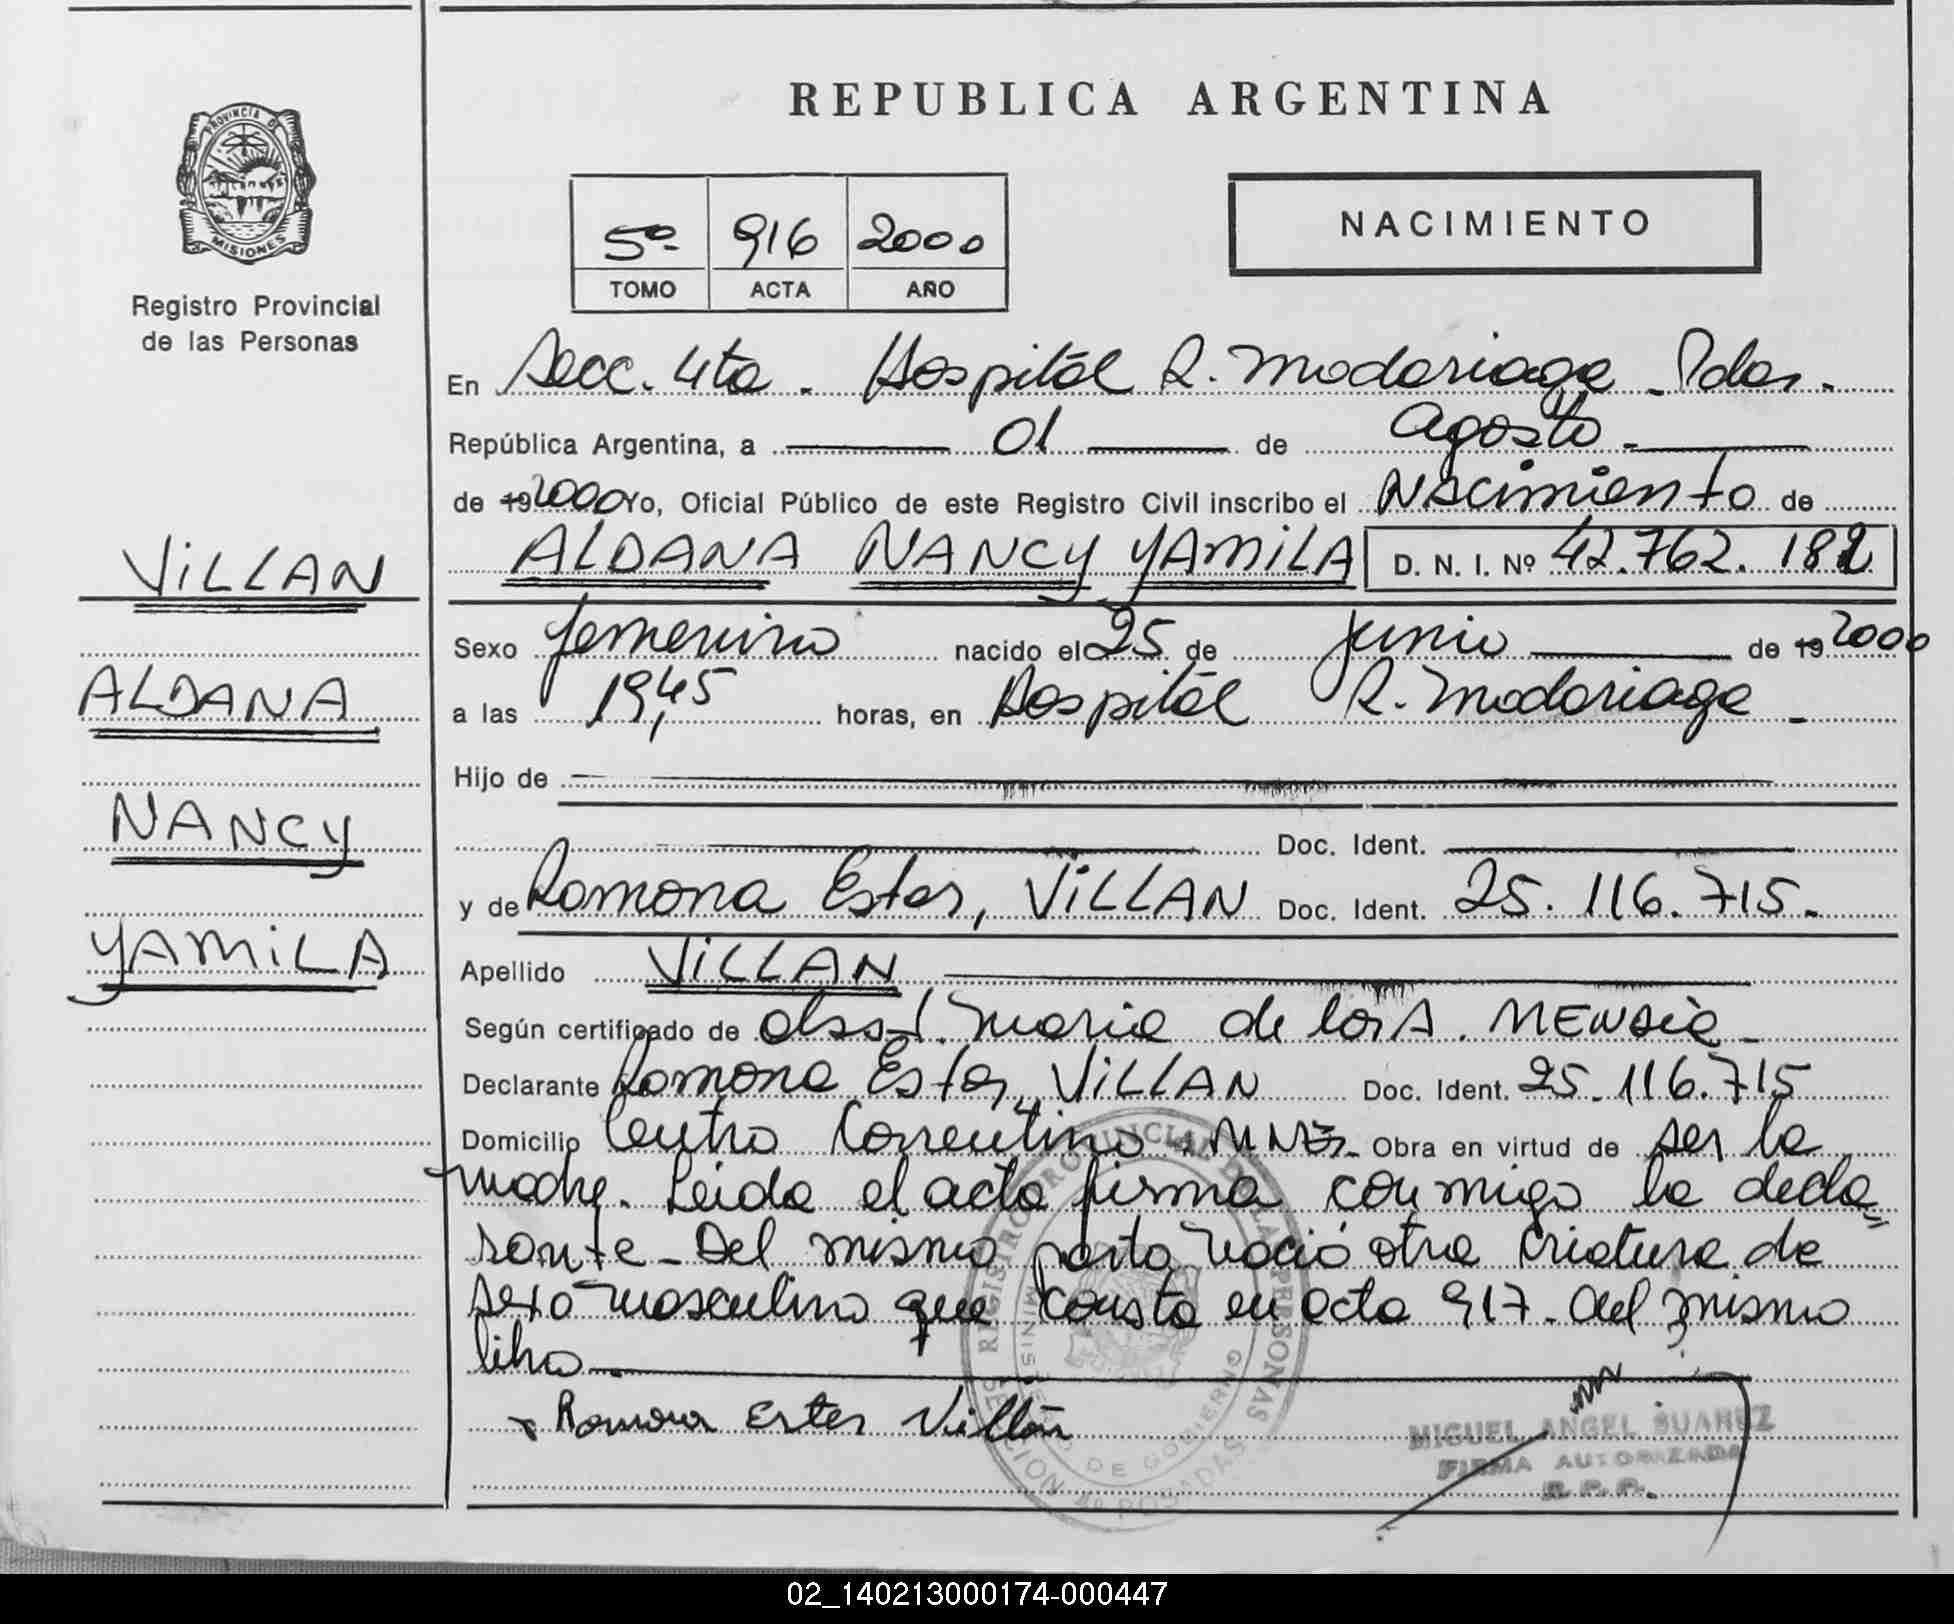 REPUBLICA ARGENTINA
PROVINCIA DE
MISIONES
Registro Provincial
de las Personas
NACIMIENTO
5º 916 2000
TOMO ACTA AÑO
En Secc. 4ta. Hospital R. Madariaga. Pdas.
República Argentina, a 01 de agosto.
de 19 2000 Yo, Oficial Público de este Registro Civil inscribo el Nacimiento de
ALDANA NANCY YAMILA D. N. I. Nº 42.762.182
VILLAN
ALDANA
NANCY
YAMILA
Sexo femenino nacido el 25 de junio de 19 2000
a las 19,45 horas, en Hospital R. Madariaga
Hijo de
Doc. Ident.
y de Ramona Ester, VILLAN Doc. Ident. 25.116.715.
Apellido VILLAN
Según certificado de obst. Maria de los A.
Declarante Ramona Ester, VILLAN Doc. Ident. 25.116.715
Domicilio Centro Correntino Obra en virtud de ser la
madre. Leida el acta firma conmigo la decla
rante - Del mismo parto nació otra criatura de
sexo masculino que consta en acta 917. del mismo
libro
Ramona Ester Villán
REGISTRO PROVINCIAL DE LAS PERSONAS
MINISTERIO DE GOBIERNO
SECCION 4º POSADAS
MIGUEL ANGEL SUAREZ
FIRMA AUTORIZADA
R.P.P.
02_140213000174-000447